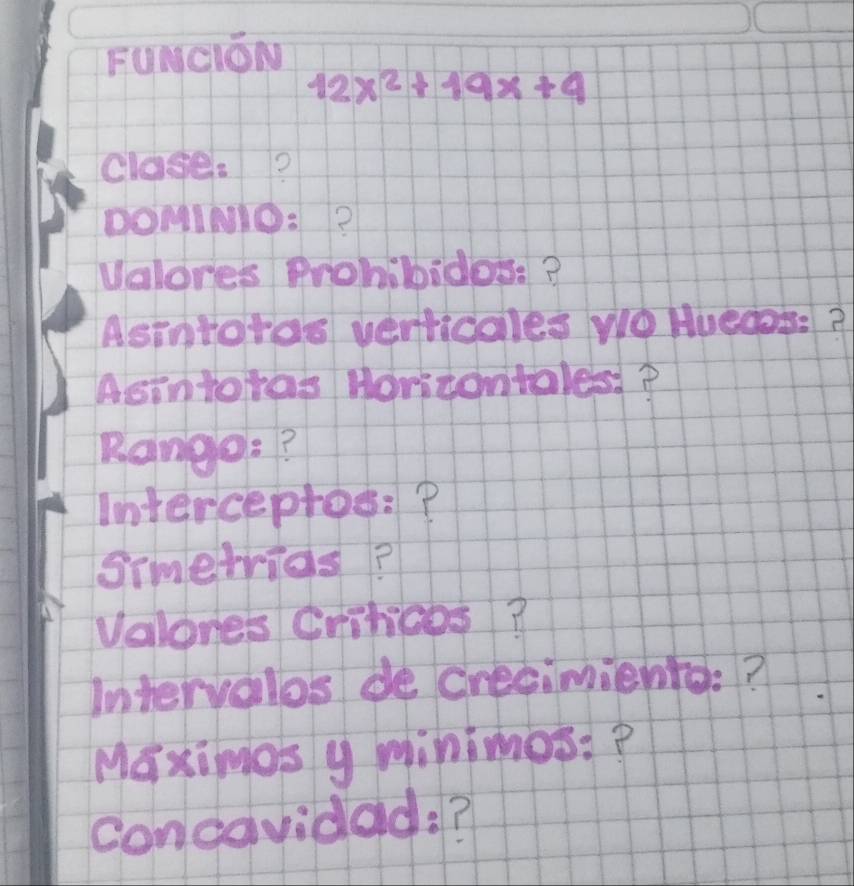 FUNCIÓN
12x² + 19x + 4
Clase: ?
DOMINIO: ?
Valores Prohibidos: ?
Asíntotas verticales y/o Huecos: ?
Asíntotas Horizontales: ?
Rango: ?
Interceptos: ?
Simetrías ?
Valores Críticos ?
Intervalos de crecimiento: ?
Máximos y mínimos: ?
Concavidad: ?